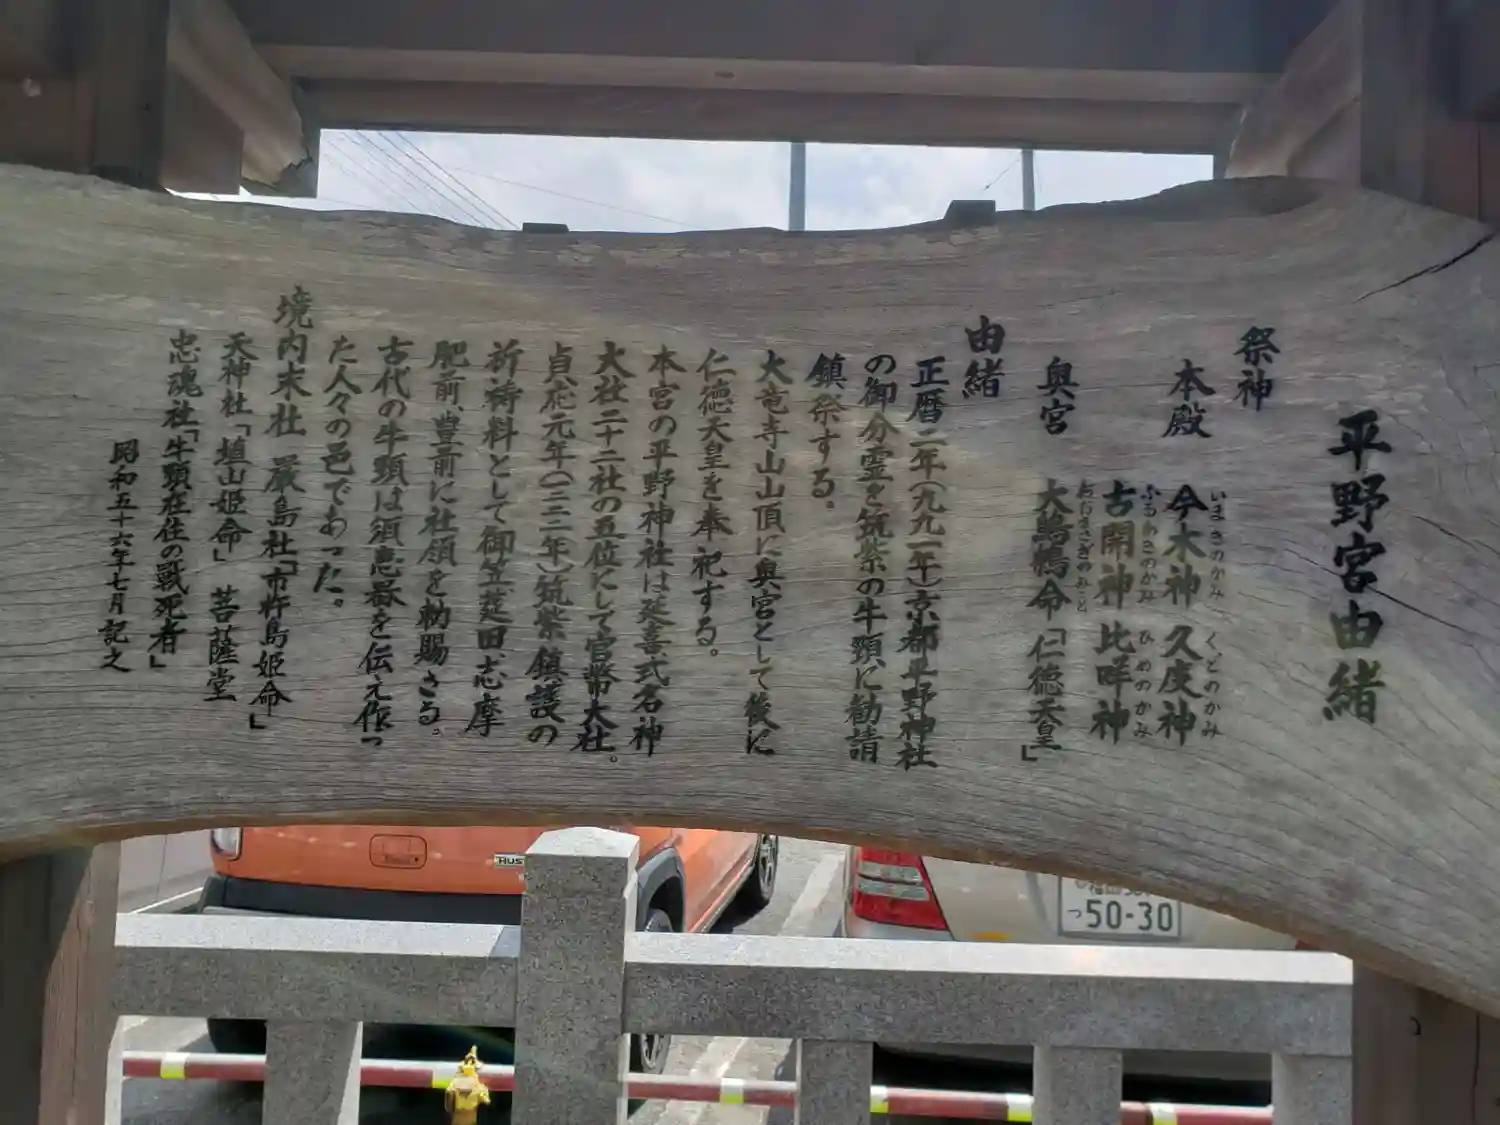 平野宮由緒
祭神
本殿 今木神 久度神
いまきのかみ くどのかみ
古開神 比咩神
ふるあきのかみ ひめのかみ
奥宮 大鷦鷯命「仁徳天皇」
おおささぎのみこと
由緒
正暦二年(九九一年)京都平野神社
の御分霊を筑紫の牛頸に勧請
鎮祭する。
大竜寺山山頂に奥宮として後に
仁徳天皇を奉祀する。
本宮の平野神社は延喜式名神
大社二十二社の五位にして官幣大社。
貞応元年(一二二二年)筑紫鎮護の
祈祷料として御笠莚田、志摩
肥前、豊前に社領を勅賜さる。
古代の牛頸は須恵器を伝え作っ
た人々の邑であった。
境内末社 厳島社「市杵島姫命」
天神社「埴山姫命」 菩薩堂
忠魂社「牛頸在住の戰死者」
昭和五十六年七月記之
HUS
つ 50-30